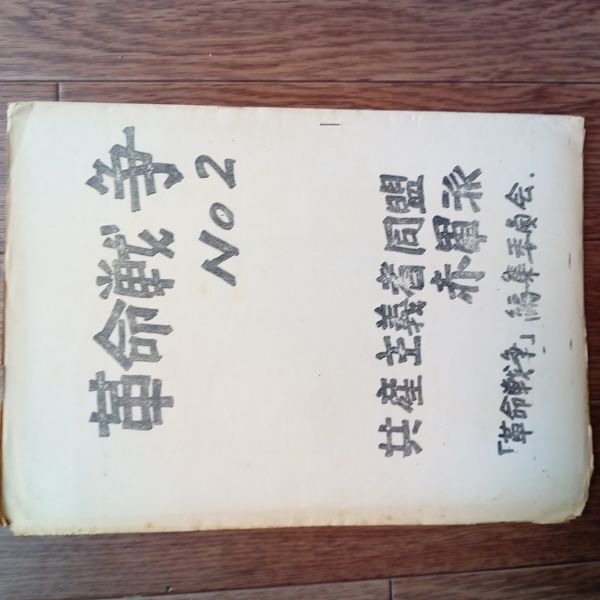 革命戦争
No 2
共産主義者同盟
赤軍派
「革命戦争」編集委員会.